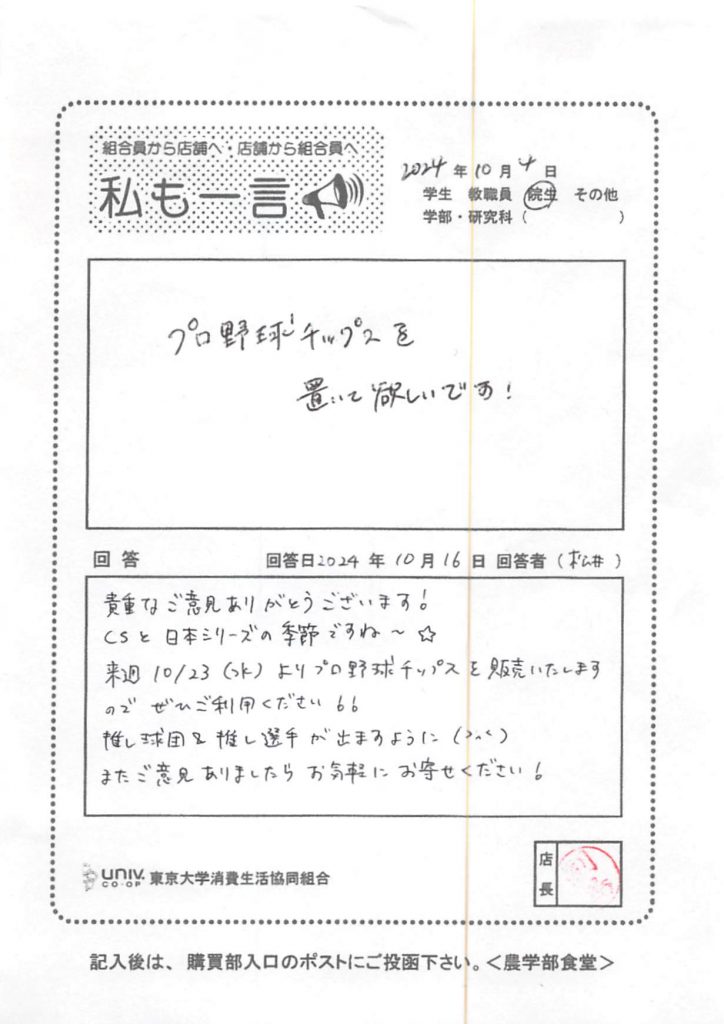 組合員から店舗へ・店舗から組合員へ
私も一言
2024 年 10 月 4 日
学生 教職員 院生 その他
学部・研究科（ ）
プロ野球チップスを
置いて欲しいです！
回答 回答日2024 年 10 月 16 日 回答者（松井）
貴重なご意見ありがとうございます！
CSと日本シリーズの季節ですね〜☆
来週 10/23（水）よりプロ野球チップスを販売いたします
ので ぜひご利用ください！！
推し球団&推し選手が出ますように
またご意見ありましたら お気軽に お寄せください！
UNIV. CO-OP 東京大学消費生活協同組合
店長
記入後は、購買部入口のポストにご投函下さい。＜農学部食堂＞